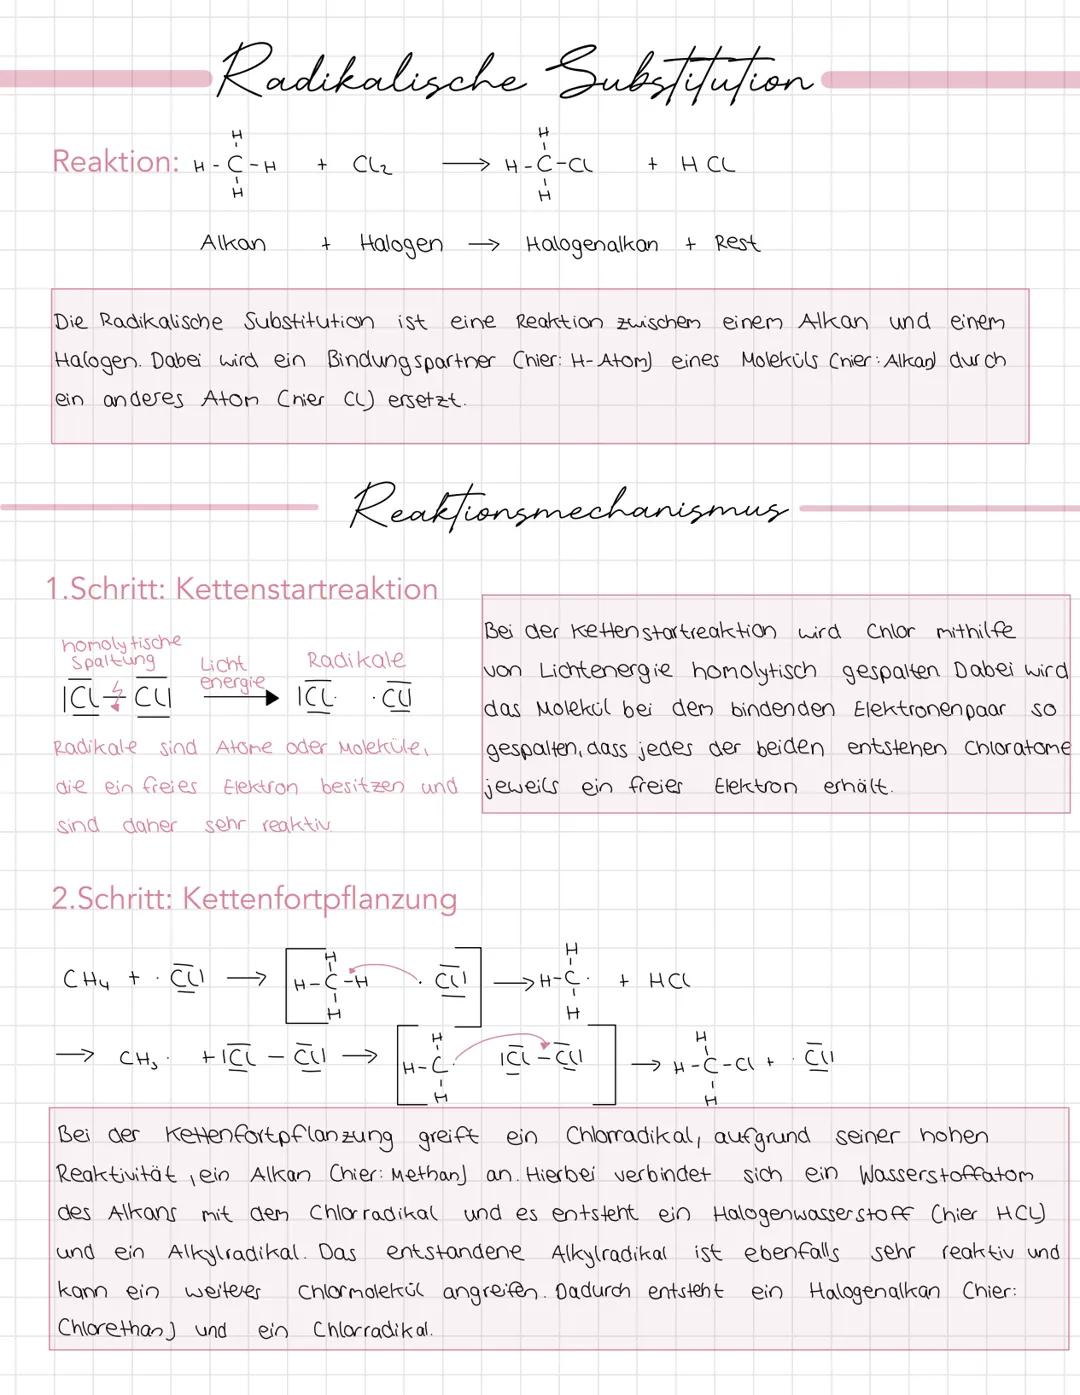 Radikalische Substitution
H
Reaktion: H - C - H + Cl2 → H - C - Cl + HCl
H
Alkan + Halogen → Halogenalkan + Rest
Die Radikalische Substitution ist eine Reaktion zwischen einem Alkan und einem
Halogen. Dabei wird ein Bindungspartner (hier: H-Atom) eines Moleküls (hier: Alkan) durch
ein anderes Atom (hier Cl) ersetzt.
Reaktionsmechanismus
1.Schritt: Kettenstartreaktion
homolytische
Spaltung
Licht
energie
Radikale
|Cl - Cl| → |Cl· ·Cl|
Radikale sind Atome oder Moleküle,
die ein freies Elektron besitzen und
sind daher sehr reaktiv
Bei der Kettenstartreaktion wird Chlor mithilfe
von Lichtenergie homolytisch gespalten Dabei wird
das Molekül bei dem bindenden Elektronenpaar so
gespalten, dass jedes der beiden entstehen Chloratome
jeweils ein freies Elektron erhält.
2.Schritt: Kettenfortpflanzung
H H
CH4 + ·Cl| → [H-C-H ·Cl|] → H-C· + HCl
H H
H H
→ CH3· + |Cl - Cl| → [H-C· |Cl-Cl|] → H-C-Cl + ·Cl|
H H
Bei der Kettenfortpflanzung greift ein Chlorradikal, aufgrund seiner hohen
Reaktivität, ein Alkan (hier: Methan) an. Hierbei verbindet sich ein Wasserstoffatom
des Alkans mit dem Chlorradikal und es entsteht ein Halogenwasserstoff (hier HCl)
und ein Alkylradikal. Das entstandene Alkylradikal ist ebenfalls sehr reaktiv und
kann ein weiteres Chlormolekül angreifen. Dadurch entsteht ein Halogenalkan (hier:
Chlorethan) und ein Chlorradikal.